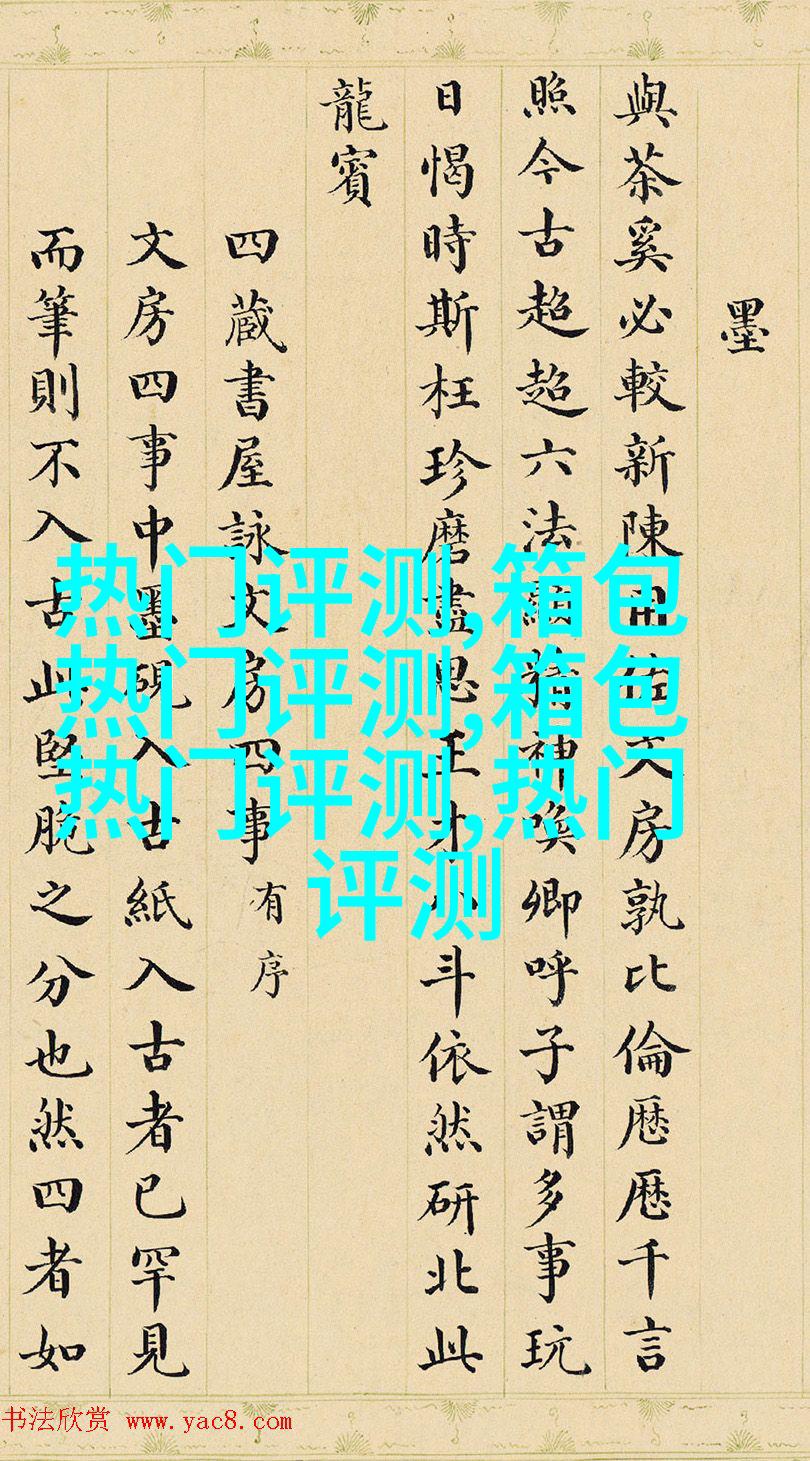 墨
與茶奚必較新陳用佐文房孰比倫厯厯千言
照今古超超六法顯精神喚卿呼子謂多事玩
日愒時斯枉珍磨盡思王才八斗依然研北此
龍賓
四蔵書屋詠文房四事 有序
文房四事中墨硯入古紙入古者已罕見
而筆則不入古此堅脆之分也然四者如
热门评测,箱包
热门评测,箱包
热门评测,热门
评测
书法欣赏 www.yac8.com